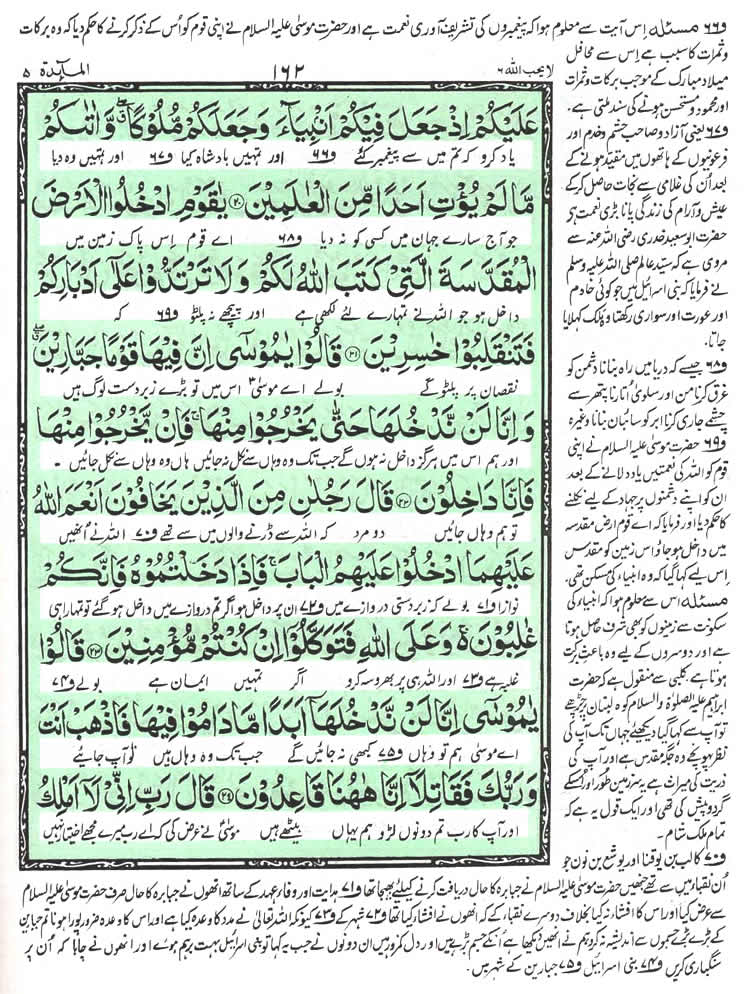 و۶۶ مسئلہ اس آیت سے معلوم ہوا کہ پیغمبروں کی تشریف آوری نعمت ہے اور حضرت موسیٰ علیہ السلام نے اپنی قوم کو اُس کے ذکر کرنے کا حکم دیا کہ وہ برکات
و ثمرات کا سبب ہے اس سے محافل
میلاد مبارک کے موجب برکات و ثمرات
اور محمود و مستحسن ہونے کی سند ملتی ہے،
و۶۷ یعنی آزاد و صاحب حشم و خدم اور
فرعونیوں کے ہاتھوں میں مقید ہونے کے
بعد اُن کی غلامی سے نجات حاصل کرکے
عیش و آرام کی زندگی پانا بڑی نعمت ہے
حضرت ابوسعید خدری رضی اللہ عنہ سے
مروی ہے کہ سید عالم صلی اللہ علیہ وسلم
نے فرمایا کہ بنی اسرائیل میں جو کوئی خادم
اور عورت اور سواری رکھتا وہ ملک کہلایا
جاتا۔
و۶۸ جیسے کہ دریا میں راہ بنانا دشمن کو
غرق کرنا من اور سلویٰ اُتارنا پتھر سے
چشمے جاری کرنا ابر کو سائبان بنانا وغیرہ
و۶۹ حضرت موسیٰ علیہ السلام نے اپنی
قوم کو اللہ کی نعمتیں یاد دلانے کے بعد
ان کو اپنے دشمنوں پر جہاد کے لیے نکلنے
کا حکم دیا اور فرمایا کہ اے قوم ارض مقدسہ
میں داخل ہو جاؤ اس زمین کو مقدس
اس لیے کہا گیا کہ وہ انبیاء کی مسکن تھی
مسئلہ اس سے معلوم ہوا کہ انبیاء کی
سکونت سے زمینوں کو بھی شرف حاصل ہوتا
ہے اور دوسروں کے لیے وہ باعث برکت
ہوتا ہے کلبی سے منقول ہے کہ حضرت
ابراہیم علیہ الصلوٰۃ والسلام کوہ لبنان پر چڑھے
تو آپ سے کہا گیا دیکھئے جہاں تک آپ کی
نظر پہونچے وہ جگہ مقدس ہے اور آپ کی
ذریت کی میراث ہے یہ سرزمین طور اور اسکے
گردو پیش کی تھی اور ایک قول یہ ہے کہ
تمام ملک شام۔
و۷۰ کالب بن یوقنا اور یوشع بن نون جو
لا یحب اللہ ۶ ۱۶۲ المآئدۃ ۵
عَلَيْكُمْ اِذْ جَعَلَ فِيْكُمْ اَنْۢبِيَآءَ وَجَعَلَكُمْ مُّلُوْكًا ۖ وَّاٰتٰىكُمْ
یاد کرو کہ تم میں سے پیغمبر کئے و۶۶ اور تمہیں بادشاہ کیا و۶۷ اور تمہیں وہ دیا
مَّا لَمْ يُؤْتِ اَحَدًا مِّنَ الْعٰلَمِيْنَ ﴿۲۰﴾ يٰقَوْمِ ادْخُلُوا الْاَرْضَ
جو آج سارے جہان میں کسی کو نہ دیا و۶۸ اے قوم اس پاک زمین میں
الْمُقَدَّسَةَ الَّتِيْ كَتَبَ اللّٰهُ لَكُمْ وَلَا تَرْتَدُّوْا عَلٰٓى اَدْبَارِكُمْ
داخل ہو جو اللہ نے تمہارے لئے لکھی ہے اور پیچھے نہ پلٹو و۶۹ کہ
فَتَنْقَلِبُوْا خٰسِرِيْنَ ﴿۲۱﴾ قَالُوْا يٰمُوْسٰٓى اِنَّ فِيْهَا قَوْمًا جَبَّارِيْنَ ۖ
نقصان پر پلٹو گے بولے اے موسیٰ اس میں تو بڑے زبردست لوگ ہیں
وَاِنَّا لَنْ نَّدْخُلَهَا حَتّٰى يَخْرُجُوْا مِنْهَا ۚ فَاِنْ يَّخْرُجُوْا مِنْهَا
اور ہم اس میں ہرگز داخل نہ ہوں گے جب تک وہ وہاں سے نکل نہ جائیں ہاں وہ وہاں سے نکل جائیں۔
فَاِنَّا دَاخِلُوْنَ ﴿۲۲﴾ قَالَ رَجُلٰنِ مِنَ الَّذِيْنَ يَخَافُوْنَ اَنْعَمَ اللّٰهُ
تو ہم وہاں جائیں دو مرد کہ اللہ سے ڈرنے والوں میں سے تھے و۷۰ اللہ نے اُنھیں
عَلَيْهِمَا ادْخُلُوْا عَلَيْهِمُ الْبَابَ ۚ فَاِذَا دَخَلْتُمُوْهُ فَاِنَّكُمْ
نوازا و۷۱ بولے کہ زبردستی دروازے میں و۷۲ ان پر داخل ہو اگر تم دروازے میں داخل ہو گئے تو تمہارا ہی
غٰلِبُوْنَ ۬ۚ وَعَلَى اللّٰهِ فَتَوَكَّلُوْٓا اِنْ كُنْتُمْ مُّؤْمِنِيْنَ ﴿۲۳﴾ قَالُوْا
غلبہ ہے و۷۳ اور اللہ ہی پر بھروسہ کرو اگر تمہیں ایمان ہے بولے و۷۴
يٰمُوْسٰٓى اِنَّا لَنْ نَّدْخُلَهَآ اَبَدًا مَّا دَامُوْا فِيْهَا فَاذْهَبْ اَنْتَ
اے موسیٰ ہم تو وہاں و۷۵ کبھی نہ جائیں گے جب تک وہ وہاں ہیں تو آپ جائیے
وَرَبُّكَ فَقَاتِلَآ اِنَّا هٰهُنَا قَاعِدُوْنَ ﴿۲۴﴾ قَالَ رَبِّ اِنِّيْ لَآ اَمْلِكُ
اور آپ کا رب تم دونوں لڑو ہم یہاں بیٹھے ہیں موسیٰ نے عرض کی کہ اے رب میرے مجھے اختیار نہیں
اُن نقباء میں سے تھے جنھیں حضرت موسیٰ علیہ السلام نے جبابرہ کا حال دریافت کرنے کیلئے بھیجا تھا و۷۱ ہدایت اور وفاء عہد کے ساتھ انھوں نے جبابرہ کا حال صرف حضرت موسیٰ علیہ السلام
سے عرض کیا اور اس کا افشاء نہ کیا بخلاف دوسرے نقباء کے کہ انھوں نے افشا کیا تھا و۷۲ شہر کے و۷۳ کیونکہ اللہ تعالیٰ نے مدد کا وعدہ کیا ہے اور اس کا وعدہ ضرور پورا ہونا تم جبارین
کے بڑے بڑے جسموں سے اندیشہ نہ کرو ہم نے انھیں دیکھا ہے اُنکے جسم بڑے ہیں اور دل کمزور ہیں ان دونوں نے جب یہ کہا تو بنی اسرائیل بہت برہم ہوئے اور انھوں نے چاہا کہ اُن پر
سنگباری کریں و۷۴ بنی اسرائیل و۷۵ جبارین کے شہر میں۔